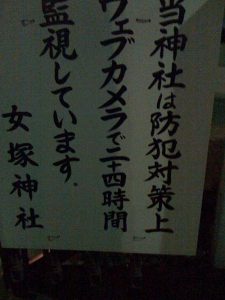 当神社は防犯対策上
ウェブカメラで二十四時間
監視しています。
女塚神社